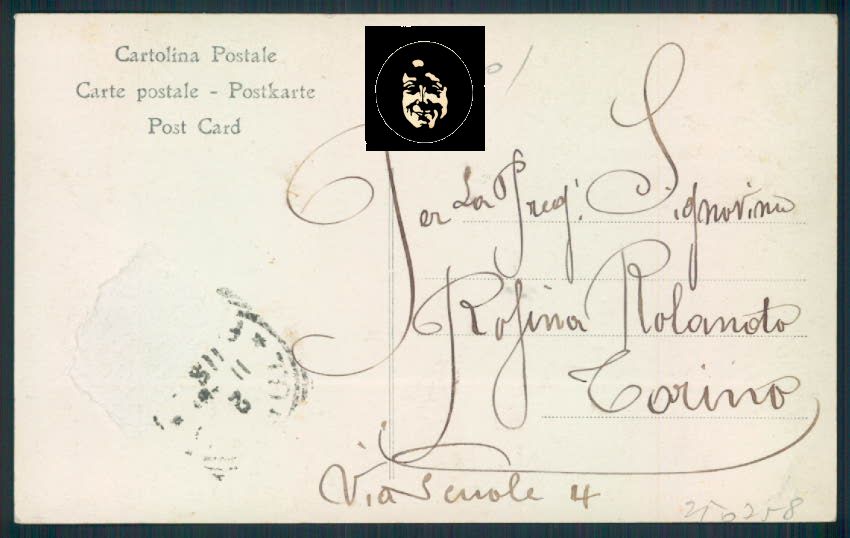 Cartolina Postale
Carte postale - Postkarte
Post Card
Per La Preg. Signorina
Rosina Rolando
Torino
Via Scuole 4
250258